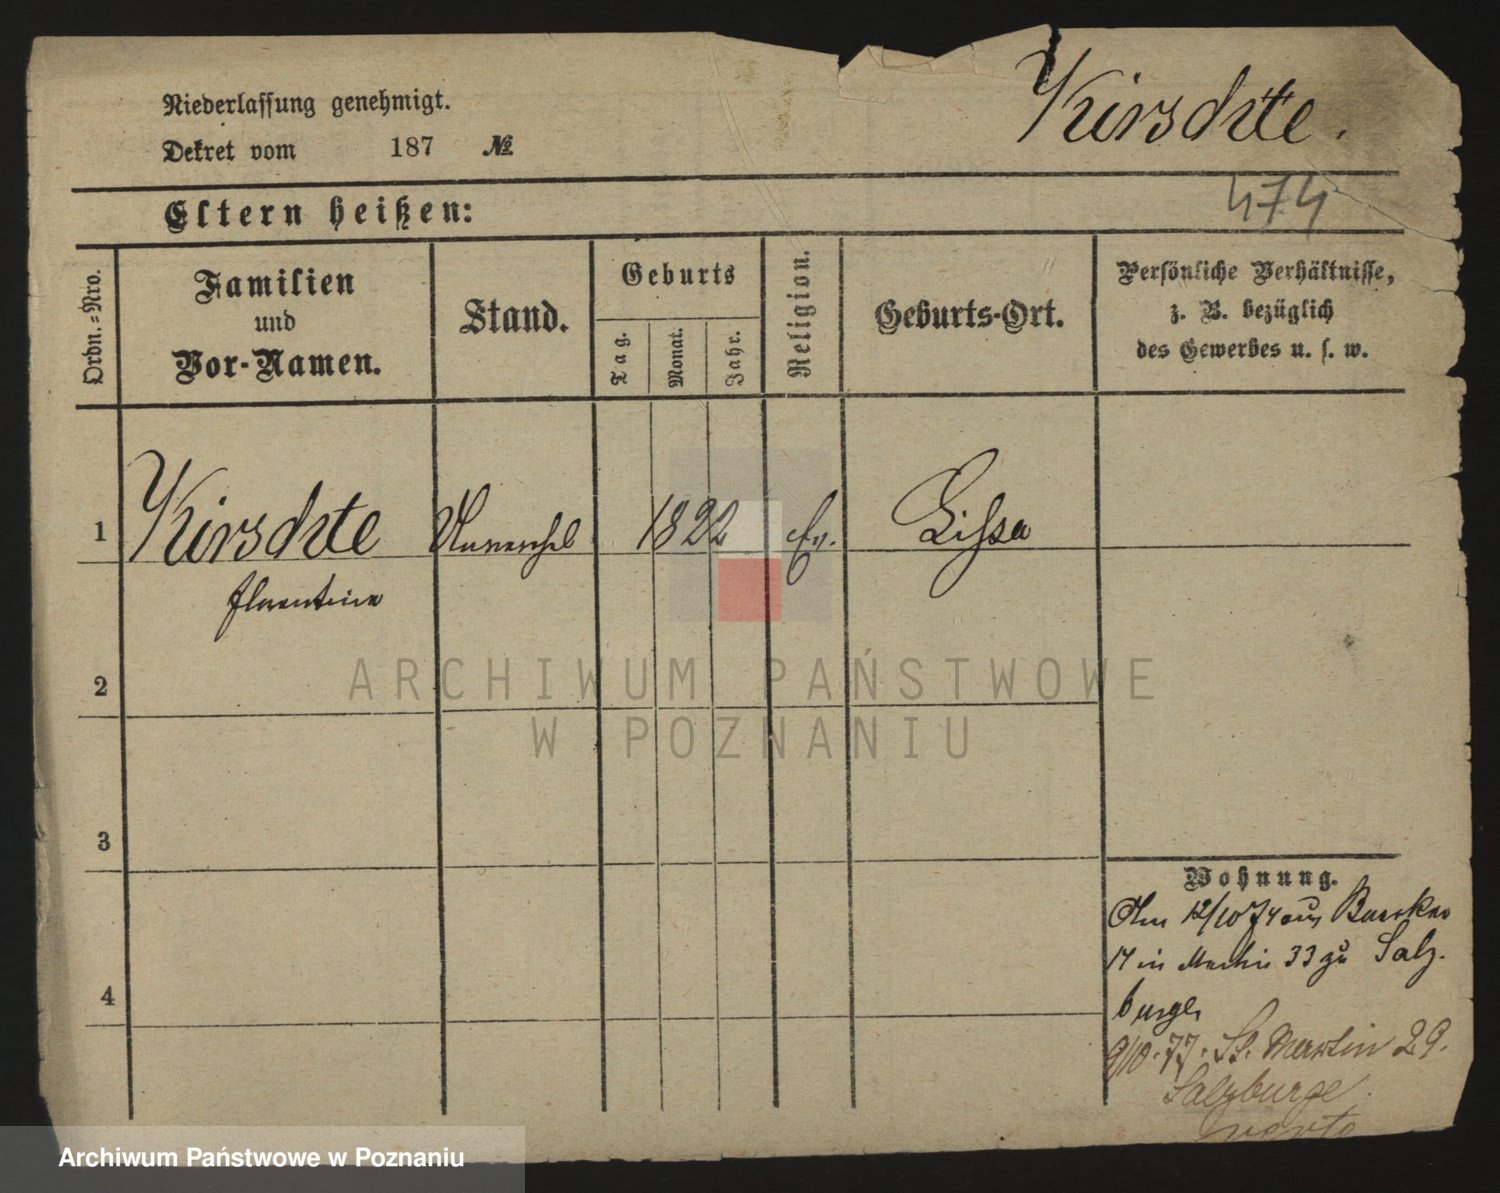 Niederlassung genehmigt.
Dekret vom 187 №
Kirschte.
474
Eltern heißen:
Ordn.-Nro.
Familien
und
Vor-Namen.
Stand.
Geburts
Tag.
Monat.
Jahr.
Religion.
Geburts-Ort.
Persönliche Verhältnisse,
z. B. bezüglich
des Gewerbes u. s. w.
1
Kirschte
Florentine
Unverehel
1822
Ev.
Lissa
2
3
4
Wohnung.
12/10 74 aus
14 in Martin 33 zu Salz-
burger
9/10.77. St. Martin 29.
Salzburge
verte
ARCHIWUM PAŃSTWOWE
W POZNANIU
Archiwum Państwowe w Poznaniu